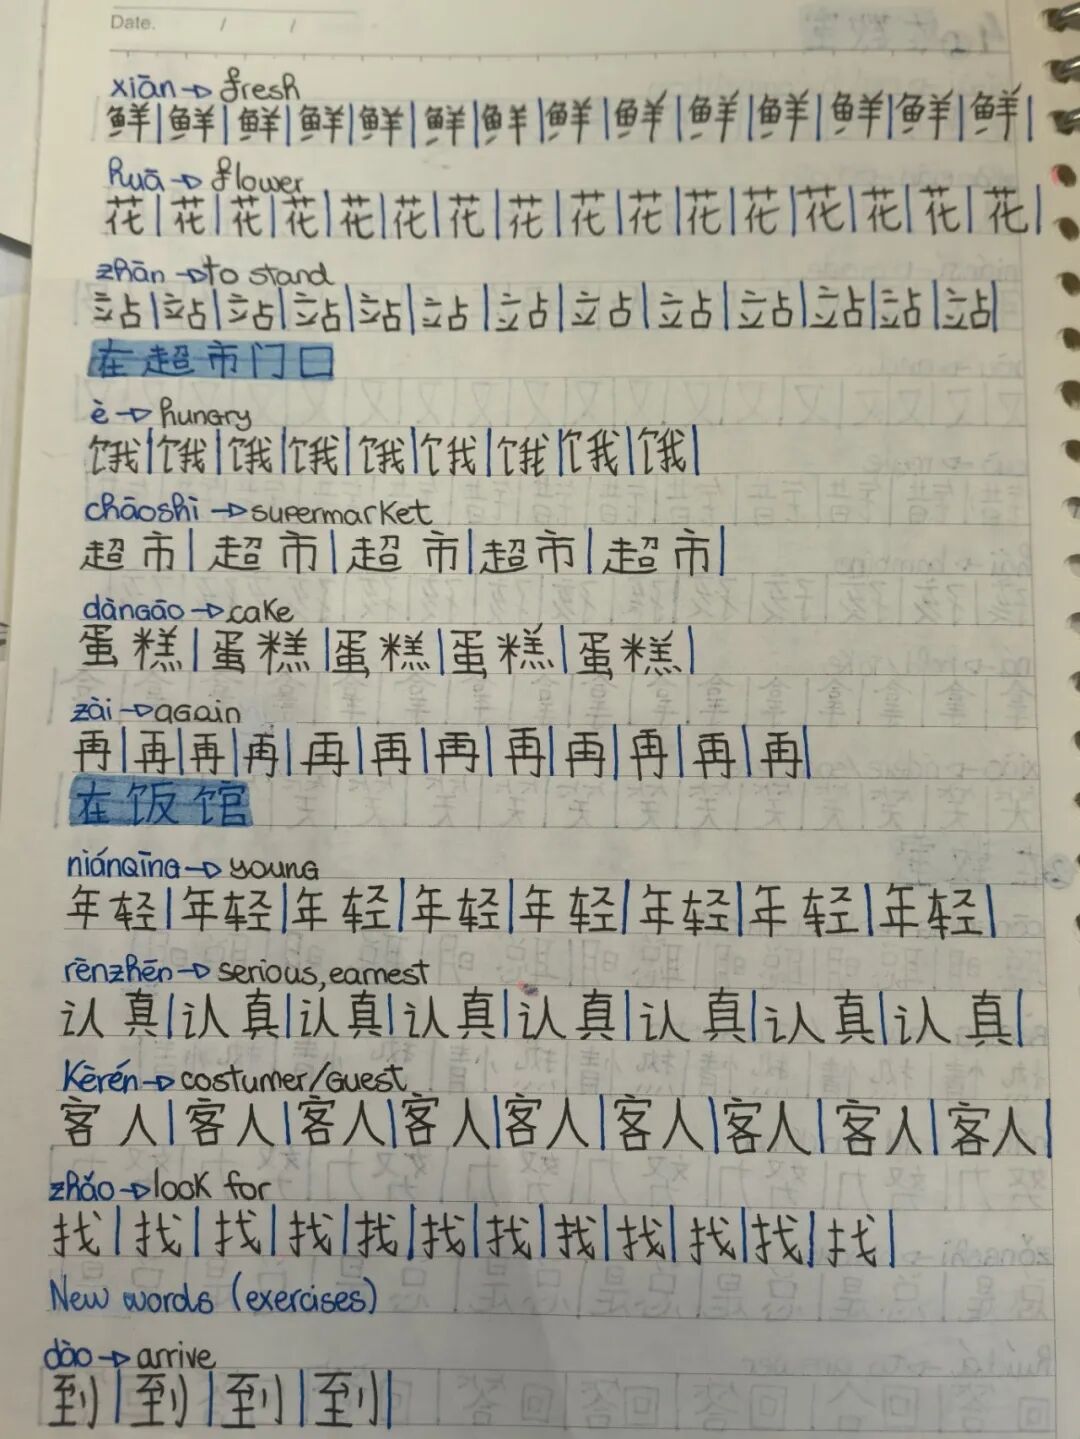 Date. / /
xiān → fresh
鲜|鲜|鲜|鲜|鲜|鲜|鲜|鲜|鲜|鲜|鲜|鲜|鲜|鲜|
huā → flower
花|花|花|花|花|花|花|花|花|花|花|花|花|花|花|花|
zhān → to stand
站|站|站|站|站|站|站|站|站|站|站|站|站|
在超市门口
è → hungry
饿|饿|饿|饿|饿|饿|饿|饿|饿|
chāoshì → supermarket
超市|超市|超市|超市|超市|
dàngāo → cake
蛋糕|蛋糕|蛋糕|蛋糕|蛋糕|
zài → again
再|再|再|再|再|再|再|再|再|再|再|再|
在饭馆
niánqīng → young
年轻|年轻|年轻|年轻|年轻|年轻|年轻|年轻|
rēnzhēn → serious, earnest
认真|认真|认真|认真|认真|认真|认真|认真|
kèrén → costumer/guest
客人|客人|客人|客人|客人|客人|客人|客人|客人|
zhǎo → look for
找|找|找|找|找|找|找|找|找|找|找|找|
New words (exercises)
dào → arrive
到|到|到|到|